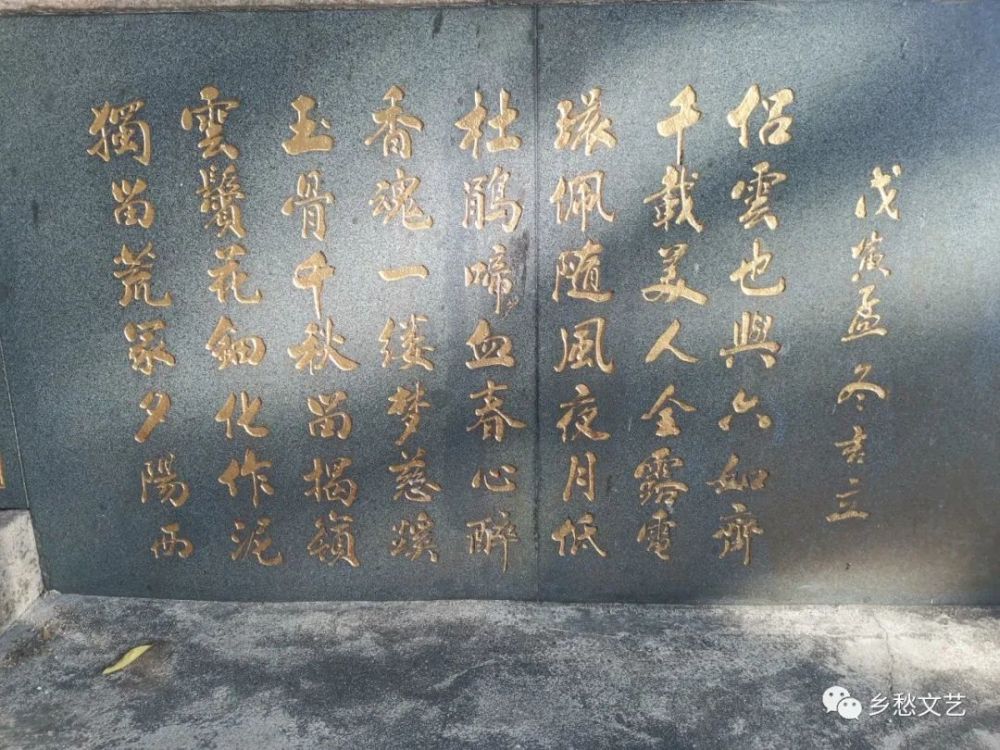 獨畄荒冢夕陽西
雲鬢花鈿化作泥
玉骨千秋畄揭嶺
香魂一缕梦慈溪
杜鹃啼血春心醉
環佩随風夜月低
千載美人全露電
侣雲也與六如齊
戊寅孟冬吉立
乡愁文艺